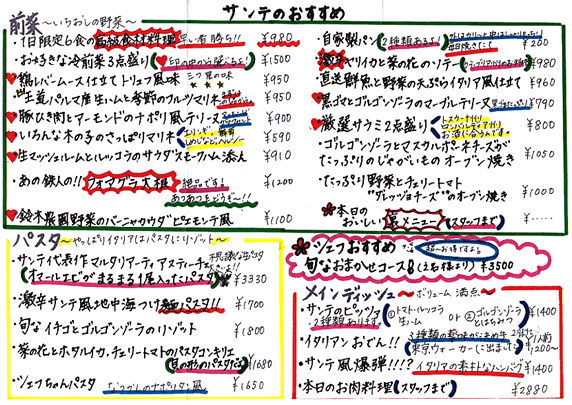 サンテのおすすめ
前菜 ～いちおしの野菜～
・1日限定6食の高級食材料理 早い者勝ち!! ¥980
・お好きな冷前菜3点盛り(♥印の中から選べる!) ¥1500
・鶏レバームース仕立てトリュフ風味 ¥950
・生ハムと季節のフルツマリネ ¥950
・豚ひき肉とアーモンドのナポリ風テリーヌ ¥900
・いろんな木の子のさっぱりマリネ ¥590
・生マッシュルームとルッコラのサラダスモークハム添え ¥910
・あの鉄人の!! フォアグラ大根 絶品です! あつあつをどうぞ～!! ¥1200
鈴木農園野菜のバーニャカウダピエモンテ風 ¥1100
・自家製パン(2種類あるよ!) ¥200
・激辛 イカと菜の花のソテー ¥780
・直送鮮魚と野菜の天ぷらイタリア風仕立て ¥960
・黒ゴマとゴルゴンゾーラのマーブルテリーヌ ¥790
・厳選サラミ2点盛り ¥800
・ゴルゴンゾーラとマスカルポーネチーズが
たっぷりのじゃがいものオーブン焼き ¥1050
・たっぷり野菜とチェリートマト
"グレッツォチーズ"のオーブン焼き ¥1000
★本日の
おいしい 裏メニュー(スタッフまで) ¥.....
パスタ ～やっぱりイタリアはパスタにリゾット～
・サンテ代表作マルタリアーティアスティーチェ
(オマールエビがまるまる1尾入ったパスタ) ¥3330
・激辛サンテ風地中海つけ麺パスタ!! ¥1700
・旬なイチゴとゴルゴンゾーラのリゾット ¥1800
・菜の花とホタルイカ、チェリートマトのパスタコンキリエ
(貝の形のパスタだよ) ¥1680
・シェフちゃんパスタ なつかしのナポリタン風 ¥1650
シェフおすすめ 超～お得ですよ。
旬なおまかせコースB(2名様より) ¥3500
メインディッシュ ～ボリューム満点～
・サンテのピッツァ ①トマト・ルッコラ 生ハム or ②ゴルゴンゾーラとはちみつ ¥1400
2種類あります
・イタリアンおでん!! 東京ウォーカーに出ました 1人前 ¥1200～
・サンテ風爆弾!!!? イタリアの素朴なハンバーグ ¥1400
・本日のお肉料理(スタッフまで) ¥2880